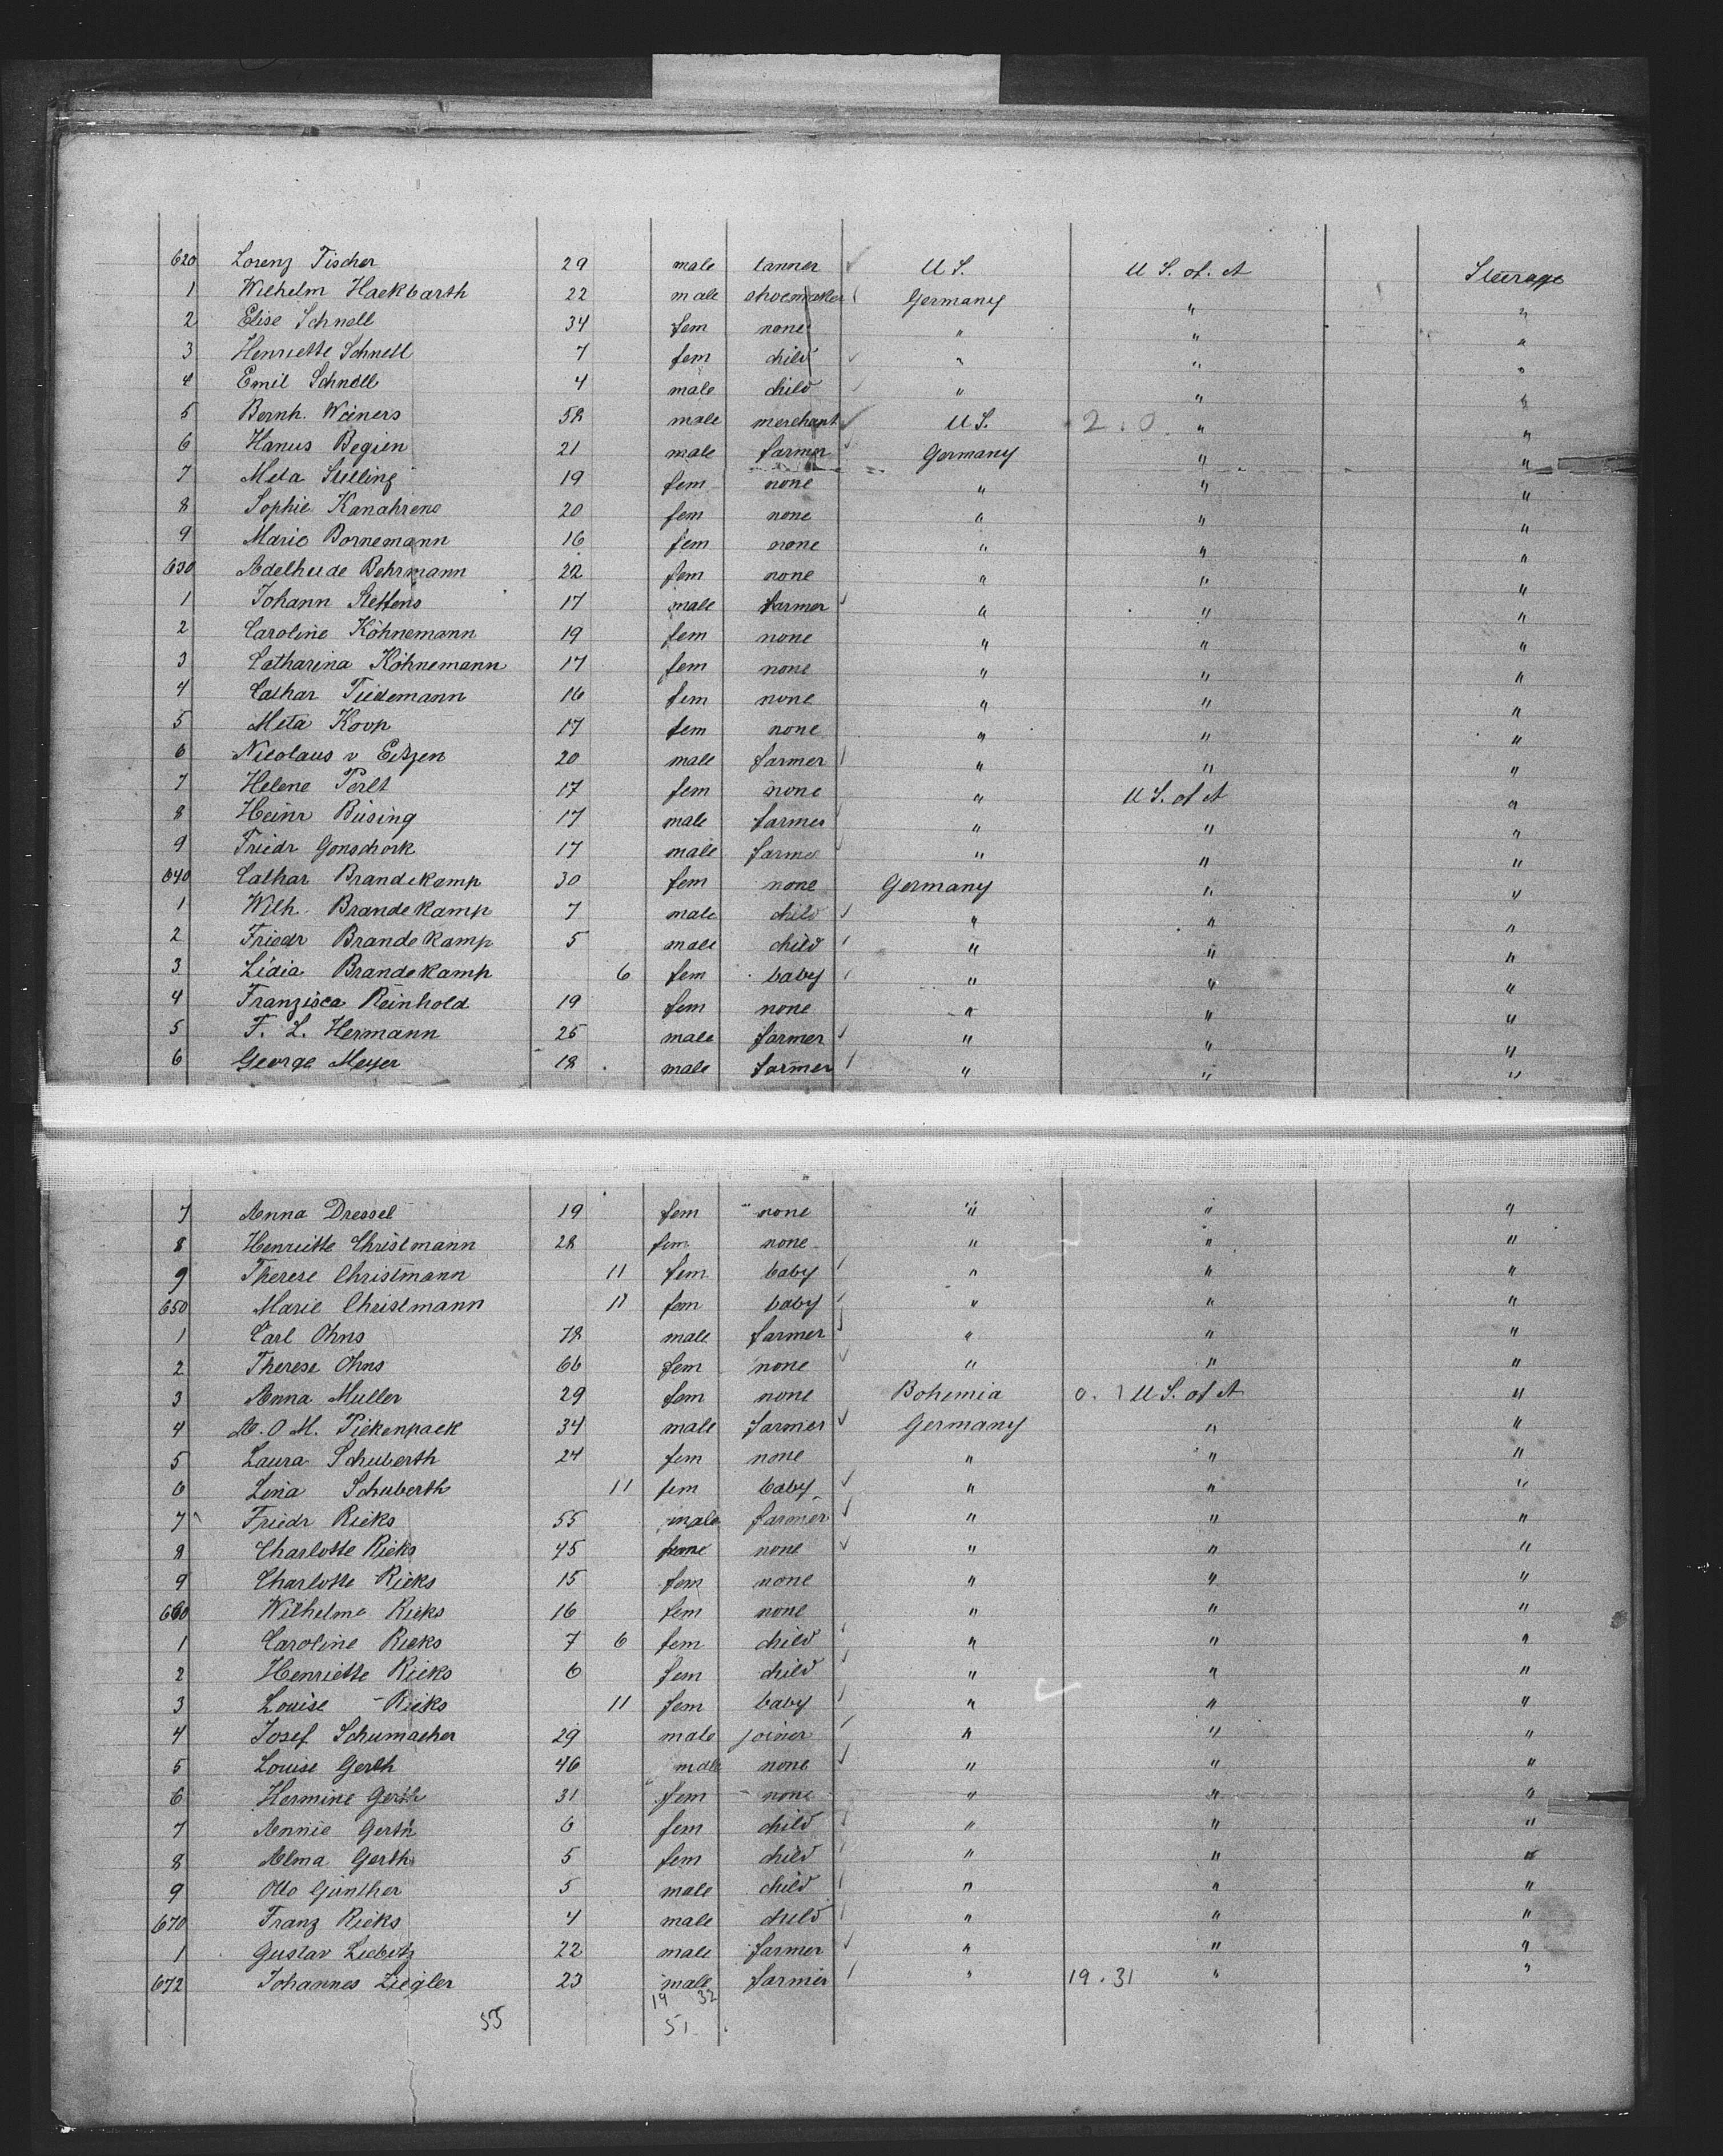 620 Lorenz Fischer 29 male tanner U S. U S. of. A Steerage
1 Wilhelm Hackbarth 22 male shoemaker Germany " "
2 Elise Schnell 34 fem none " " "
3 Henriette Schnell 7 fem child " " "
4 Emil Schnell 4 male child " " "
5 Bernh. Wieners 58 male merchant U S. 2.0 " "
6 Hanus Begien 21 male farmer Germany " "
7 Meta Stelling 19 fem none " " "
8 Sophie Kanahrens 20 fem none " " "
9 Marie Bornemann 16 fem none " " "
630 Adelheide Behrmann 22 fem none " " "
1 Johann Steffens 17 male farmer " " "
2 Caroline Köhnemann 19 fem none " " "
3 Catharina Köhnemann 17 fem none " " "
4 Cathar Tiedemann 16 fem none " " "
5 Meta Koop 17 fem none " " "
6 Nicolaus v Eitzen 20 male farmer " " "
7 Helene Perlt 17 fem none " U S. of A "
8 Heinr Büsing 17 male farmer " " "
9 Friedr Gonschork 17 male farmer " " "
640 Cathar Brandekamp 30 fem none Germany " "
1 Wilh. Brandekamp 7 male child " " "
2 Friedr Brandekamp 5 male child " " "
3 Lidia Brandekamp 6 fem baby " " "
4 Franzisca Reinhold 19 fem none " " "
5 F. L. Hermann 25 male farmer " " "
6 George Meyer 18 male farmer " " "
7 Anna Dressel 19 fem none " " "
8 Henriette Christmann 28 fem none " " "
9 Therese Christmann 11 fem baby " " "
650 Marie Christmann 11 fem baby " " "
1 Carl Ohns 78 male farmer " " "
2 Therese Ohns 66 fem none " " "
3 Anna Muller 29 fem none Bohemia 0. 1 U S. of A "
4 A. O M. Piekenpack 34 male farmer Germany " "
5 Laura Schuberth 24 fem none " " "
6 Lina Schuberth 11 fem baby " " "
7 Friedr Rieks 55 male farmer " " "
8 Charlotte Rieks 45 none " " "
9 Charlotte Rieks 15 fem none " " "
660 Wilhelme Rieks 16 fem none " " "
1 Caroline Rieks 7 6 fem child " " "
2 Henriette Rieks 6 fem child " " "
3 Louise Rieks 11 fem baby " " "
4 Josef Schumacher 29 male joiner " " "
5 Louise Gerth 46 male none " " "
6 Hermine Gerth 31 fem none " " "
7 Annie Gerth 6 fem child " " "
8 Alma Gerth 5 fem child " " "
9 Otto Günther 5 male child " " "
670 Franz Rieks 4 male child " " "
1 Gustav Liebetz 22 male farmer " " "
672 Johannes Ziegler 23 male farmer " 19.31 " "
19 32
55 51